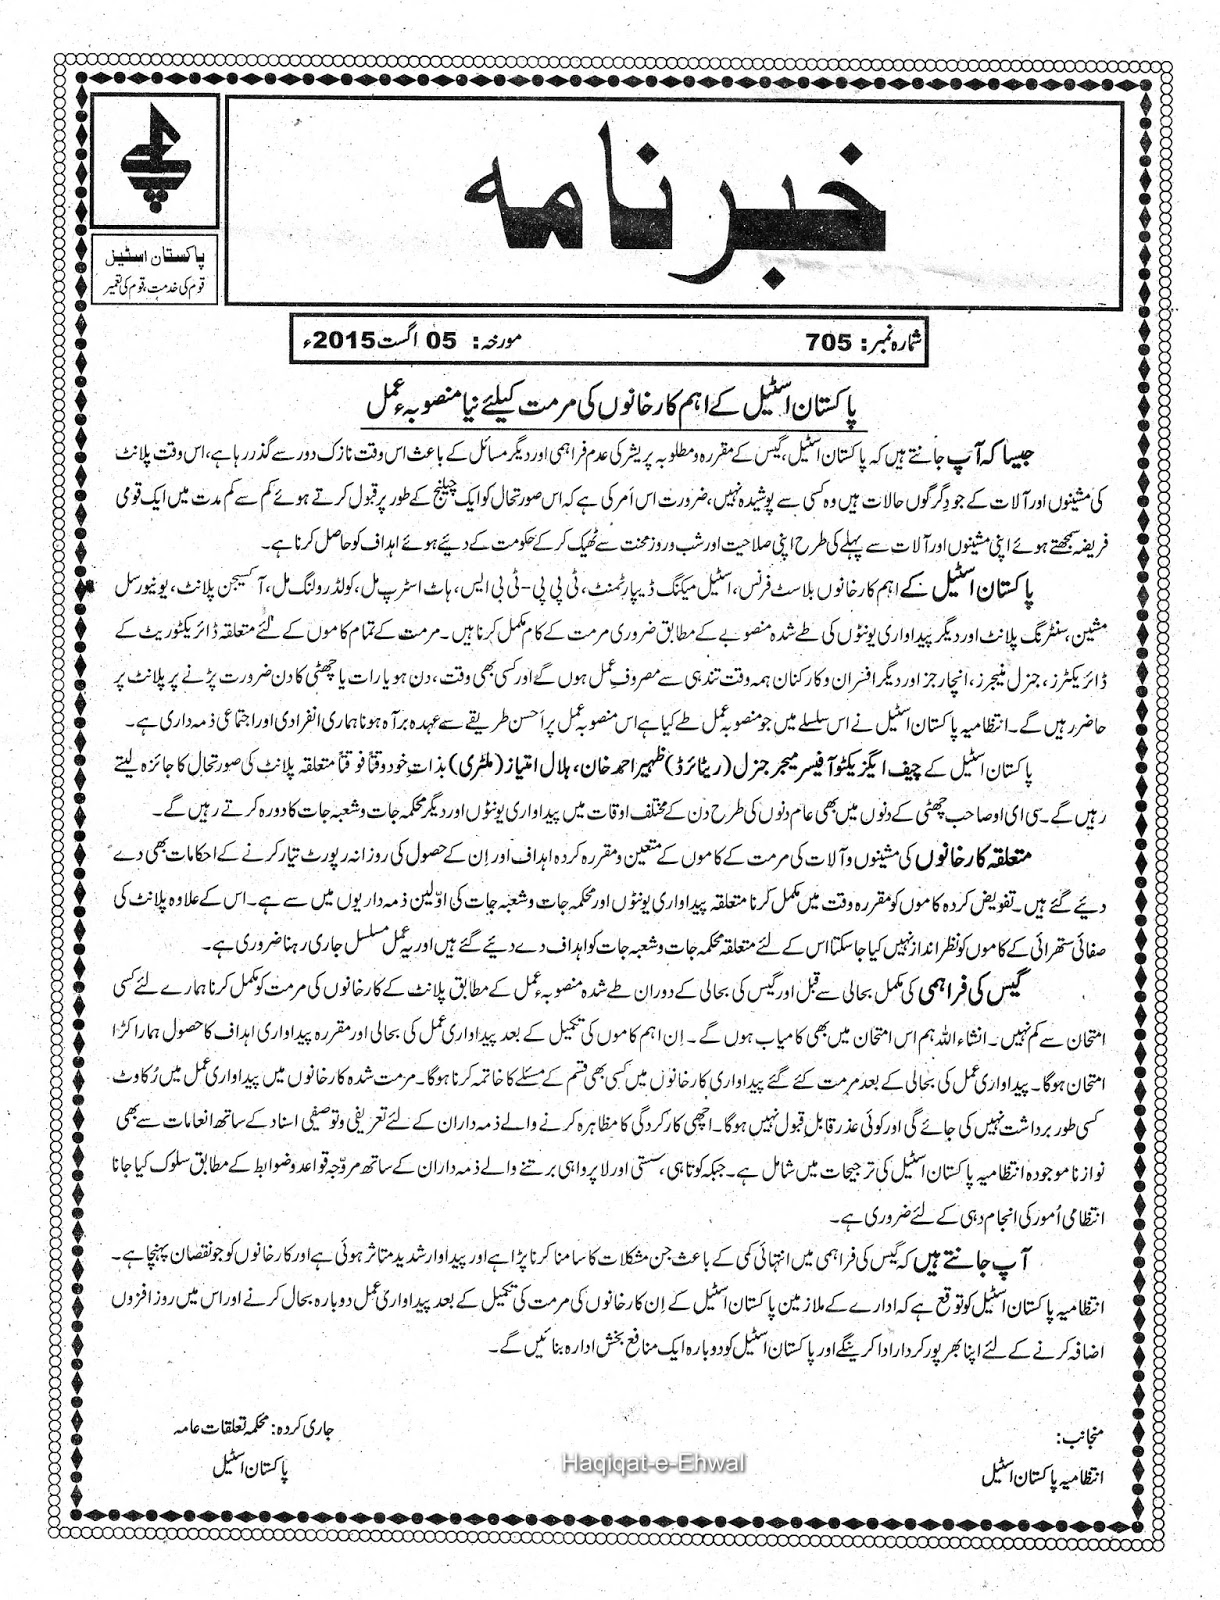 خبرنامہ
پاکستان اسٹیل
قوم کی خدمت، قوم کی تعمیر
شمارہ نمبر: 705 مورخہ: 05 اگست 2015ء
پاکستان اسٹیل کے اہم کارخانوں کی مرمت کیلئے نیا منصوبہء عمل
جیسا کہ آپ جانتے ہیں کہ پاکستان اسٹیل، گیس کے مقررہ و مطلوبہ پریشر کی عدم فراہمی اور دیگر مسائل کے باعث اس وقت نازک دور سے گذر رہا ہے، اس وقت پلانٹ
کی مشینوں اور آلات کے جو دِگرگوں حالات ہیں وہ کسی سے پوشیدہ نہیں، ضرورت اس اَمر کی ہے کہ اس صورتحال کو ایک چیلنج کے طور پر قبول کرتے ہوئے کم سے کم مدت میں ایک قومی
فریضہ سمجھتے ہوئے اپنی مشینوں اور آلات سے پہلے کی طرح اپنی صلاحیت اور شب و روز محنت سے ٹھیک کر کے حکومت کے دیئے ہوئے اہداف کو حاصل کرنا ہے۔
پاکستان اسٹیل کے اہم کارخانوں بلاسٹ فرنس، اسٹیل میکنگ ڈیپارٹمنٹ، ٹی پی پی-ٹی بی ایس، ہاٹ اسٹرپ مل، کولڈ رولنگ مل، آکسیجن پلانٹ، یونیورسل
مشین، سنٹرنگ پلانٹ اور دیگر پیداواری یونٹوں کی طے شدہ منصوبے کے مطابق ضروری مرمت کے کام مکمل کرنا ہیں۔ مرمت کے تمام کاموں کے لئے متعلقہ ڈائریکٹوریٹ کے
ڈائریکٹرز، جنرل منیجرز، انچارجز اور دیگر افسران و کارکنان ہمہ وقت تندہی سے مصروفِ عمل ہوں گے اور کسی بھی وقت، دن ہو یا رات یا چھٹی کا دن ضرورت پڑنے پر پلانٹ پر
حاضر رہیں گے۔ انتظامیہ پاکستان اسٹیل نے اس سلسلے میں جو منصوبہ عمل طے کیا ہے اس منصوبہ عمل پر اَحسن طریقے سے عہدہ برآہ ہونا ہماری انفرادی اور اجتماعی ذمہ داری ہے۔
پاکستان اسٹیل کے چیف ایگزیکٹو آفیسر میجر جنرل (ریٹائرڈ) ظہیر احمد خان، ہلال امتیاز (ملٹری) بذاتِ خود وقتاً فوقتاً متعلقہ پلانٹ کی صورتحال کا جائزہ لیتے
رہیں گے۔ سی ای او صاحب چھٹی کے دنوں میں بھی عام دنوں کی طرح دن کے مختلف اوقات میں پیداواری یونٹوں اور دیگر محکمہ جات و شعبہ جات کا دورہ کرتے رہیں گے۔
متعلقہ کارخانوں کی مشینوں و آلات کی مرمت کے کاموں کے متعین و مقررہ کردہ اہداف اور اِن کے حصول کی روزانہ رپورٹ تیار کرنے کے احکامات بھی دے
دیئے گئے ہیں۔ تفویض کردہ کاموں کو مقررہ وقت میں مکمل کرنا متعلقہ پیداواری یونٹوں اور محکمہ جات و شعبہ جات کی اوّلین ذمہ داریوں میں سے ہے۔ اس کے علاوہ پلانٹ کی
صفائی ستھرائی کے کاموں کو نظر انداز نہیں کیا جاسکتا اس کے لئے متعلقہ محکمہ جات و شعبہ جات کو اہداف دے دیئے گئے ہیں اور یہ عمل مسلسل جاری رہنا ضروری ہے۔
گیس کی فراہمی کی مکمل بحالی سے قبل اور گیس کی بحالی کے دوران طے شدہ منصوبہء عمل کے مطابق پلانٹ کے کارخانوں کی مرمت کو مکمل کرنا ہمارے لئے کسی
امتحان سے کم نہیں۔ انشاء اللہ ہم اس امتحان میں بھی کامیاب ہوں گے۔ اِن اہم کاموں کی تکمیل کے بعد پیداواری عمل کی بحالی اور مقررہ پیداواری اہداف کا حصول ہمارا کڑا
امتحان ہوگا۔ پیداواری عمل کی بحالی کے بعد مرمت کئے گئے پیداواری کارخانوں میں کسی بھی قسم کے مسئلے کا خاتمہ کرنا ہوگا۔ مرمت شدہ کارخانوں میں پیداواری عمل میں رُکاوٹ
کسی طور برداشت نہیں کی جائے گی اور کوئی عذر قابلِ قبول نہیں ہوگا۔ اچھی کارکردگی کا مظاہرہ کرنے والے ذمہ داران کے لئے تعریفی و توصیفی اسناد کے ساتھ انعامات سے بھی
نوازنا موجودہ انتظامیہ پاکستان اسٹیل کی ترجیحات میں شامل ہے۔ جبکہ کوتاہی، سستی اور لاپرواہی برتنے والے ذمہ داران کے ساتھ مروّجہ قواعد و ضوابط کے مطابق سلوک کیا جانا
انتظامی اُمور کی انجام دہی کے لئے ضروری ہے۔
آپ جانتے ہیں کہ گیس کی فراہمی میں انتہائی کمی کے باعث جن مشکلات کا سامنا کرنا پڑا ہے اور پیداوار شدید متاثر ہوئی ہے اور کارخانوں کو جو نقصان پہنچا ہے۔
انتظامیہ پاکستان اسٹیل کو توقع ہے کہ ادارے کے ملازمین پاکستان اسٹیل کے اِن کارخانوں کی مرمت کی تکمیل کے بعد پیداواری عمل دوبارہ بحال کرنے اور اس میں روز افزوں
اضافہ کرنے کے لئے اپنا بھرپور کردار ادا کرینگے اور پاکستان اسٹیل کو دوبارہ ایک منافع بخش ادارہ بنائیں گے۔
منجانب:
انتظامیہ پاکستان اسٹیل
جاری کردہ: محکمہ تعلقات عامہ
پاکستان اسٹیل
Haqiqat-e-Ehwal